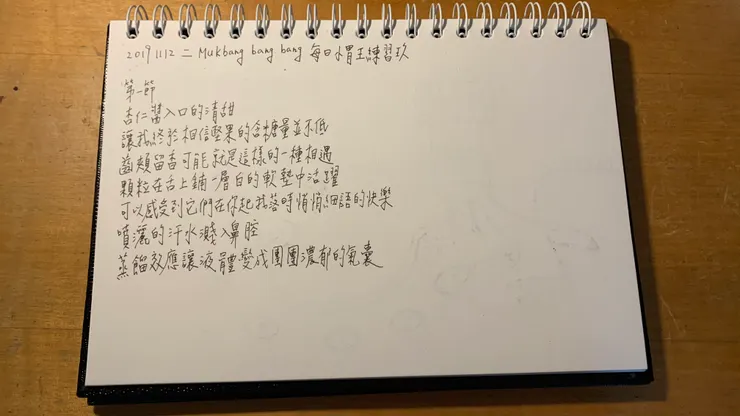 2019 11 12 二 Mukbang bang bang 每日小胃王練習玖
第一節
杏仁醬入口的清甜
讓我終於相信堅果的含糖量並不低
齒頰留香可能就是這樣的一種相遇
顆粒在舌上鋪一層白的軟墊中活躍
可以感受到它們在你起我落時悄悄細語的快樂
噴灑的汗水濺入鼻腔
蒸餾效應讓液體變成團團濃郁的氣囊